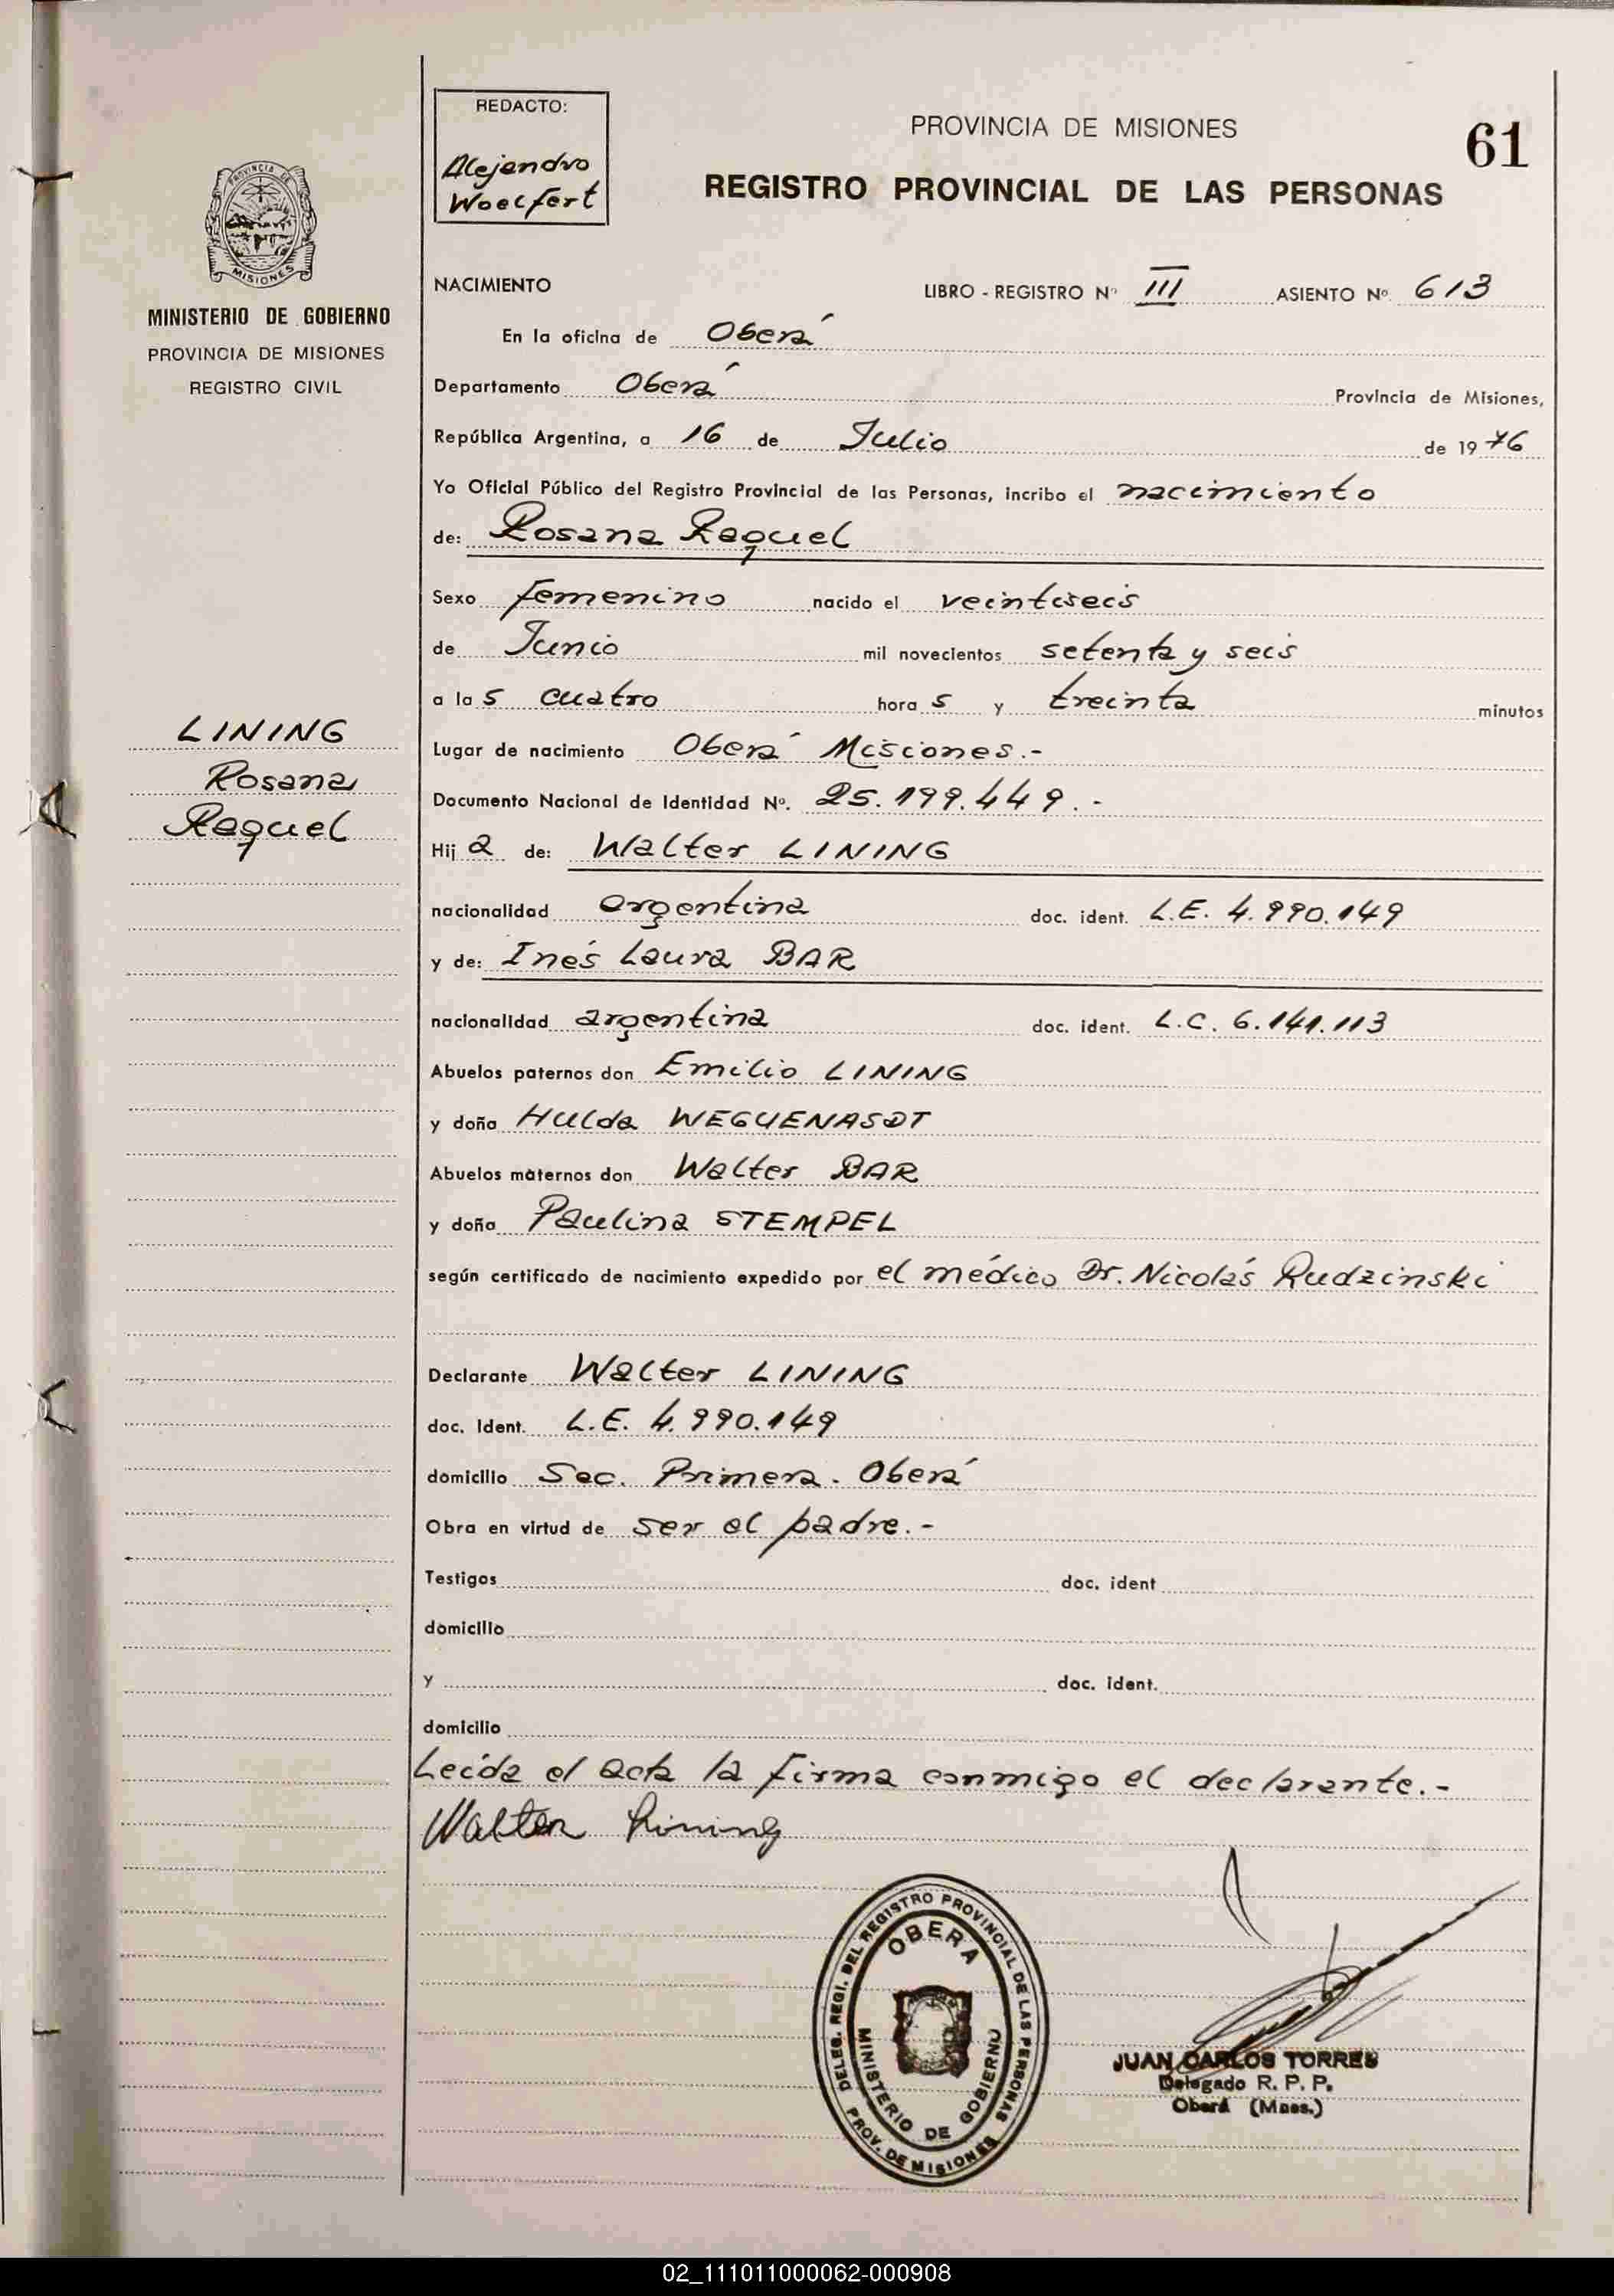 REDACTO:
Alejandro
Woelfert
PROVINCIA DE MISIONES
61
REGISTRO PROVINCIAL DE LAS PERSONAS
PROVINCIA DE
MISIONES
MINISTERIO DE GOBIERNO
PROVINCIA DE MISIONES
REGISTRO CIVIL
NACIMIENTO
LIBRO - REGISTRO Nº III ASIENTO Nº 613
En la oficina de Oberá
Departamento Oberá Provincia de Misiones,
República Argentina, a 16 de Julio de 1976
Yo Oficial Público del Registro Provincial de las Personas, incribo el nacimiento
de: Rosana Raquel
Sexo femenino nacido el veintiseis
de Junio mil novecientos setenta y seis
a las cuatro horas y treinta minutos
LINING
Rosana
Raquel
Lugar de nacimiento Oberá Misiones.-
Documento Nacional de Identidad Nº. 25.199.449.-
Hija de: Walter LINING
nacionalidad argentina doc. ident. L.E. 4.990.149
y de: Inés Laura BAR
nacionalidad argentina doc. ident. L.C. 6.141.113
Abuelos paternos don Emilio LINING
y doña Hulda WEGUENASDT
Abuelos maternos don Walter BAR
y doña Paulina STEMPEL
según certificado de nacimiento expedido por el médico Dr. Nicolás Rudzinski
Declarante Walter LINING
doc. Ident. L.E. 4.990.149
domicilio Sec. Primera. Oberá
Obra en virtud de ser el padre.-
Testigos doc. ident
domicilio
y doc. ident.
domicilio
Leída el acta la firma conmigo el declarante.-
Walter Lining
DELEG. REGI. DEL REGISTRO PROVINCIAL DE LAS PERSONAS
OBERA
MINISTERIO DE GOBIERNO
PROV. DE MISIONES
JUAN CARLOS TORRES
Delegado R. P. P.
Oberá (Mnes.)
02_111011000062-000908